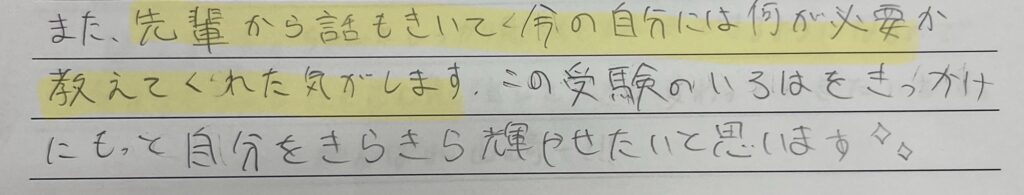 また、先輩から話もきいてく今の自分には何が必要か
教えてくれた気がします。この受験のいろはをきっかけ
にもっと自分をきらきら輝やせたいと思います✧✧